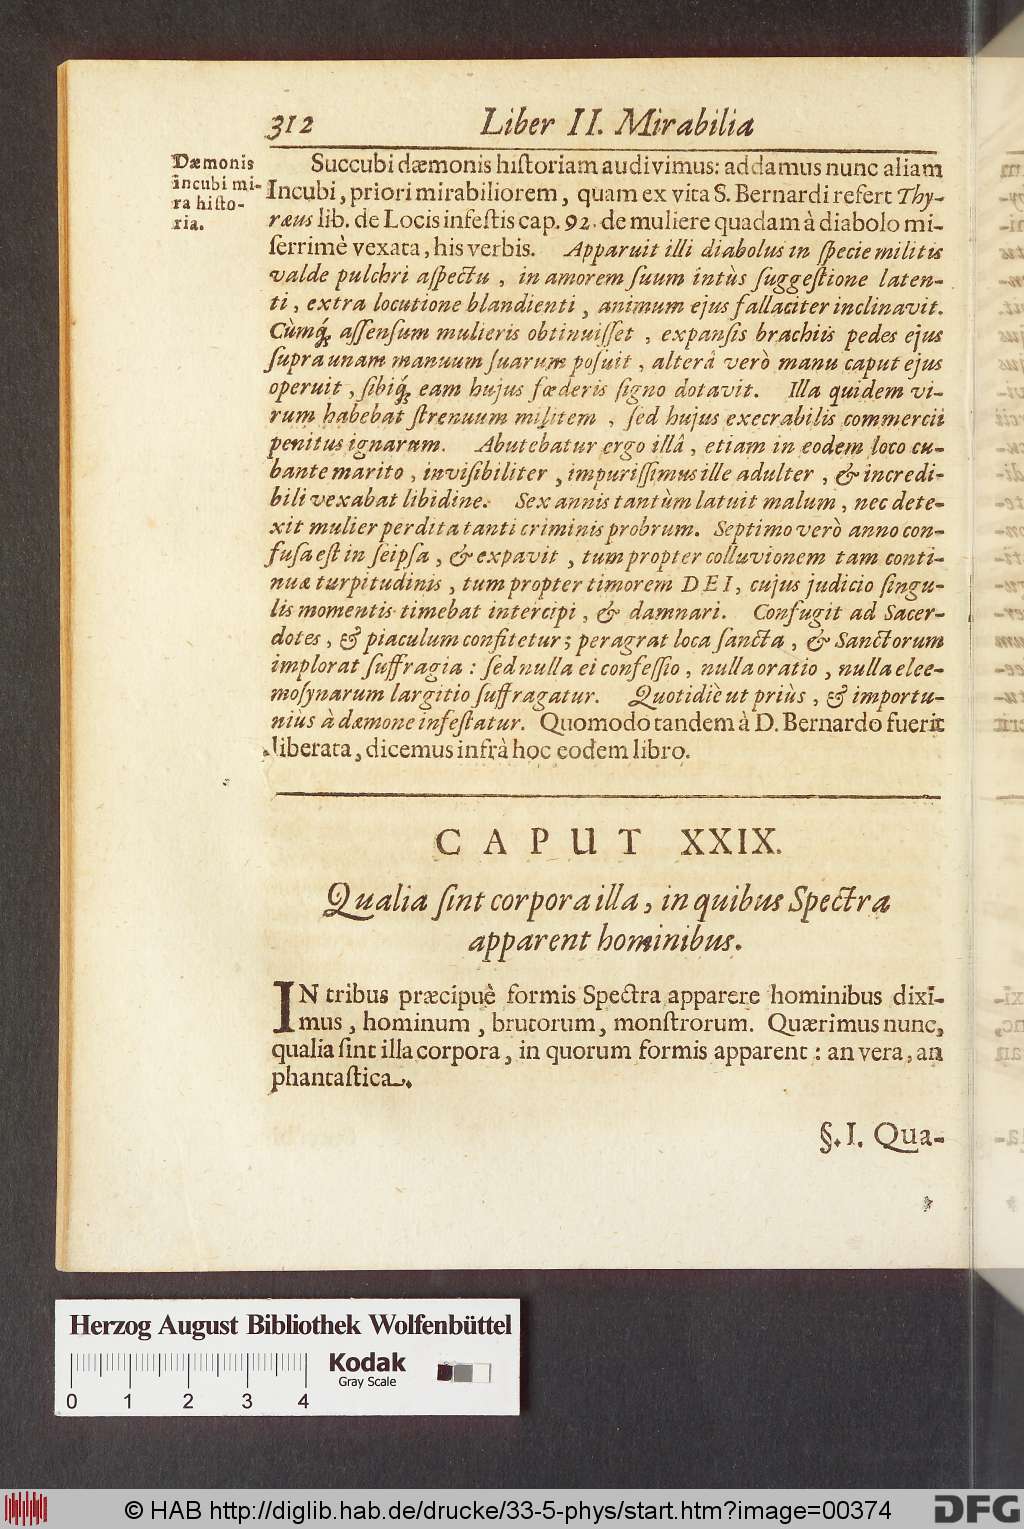 312 Liber II. Mirabilia
Dæmonis
incubi mi-
ra histo-
ria.
Succubi dæmonis hiſtoriam audivimus: addamus nunc aliam
Incubi, priori mirabiliorem, quam ex vita S. Bernardi refert Thy-
ræus lib. de Locis infeſtis cap. 92. de muliere quadam à diabolo mi-
ſerrimè vexata, his verbis. Apparuit illi diabolus in ſpecie militis
valde pulchri aſpectu, in amorem ſuum intùs ſuggeſtione laten-
ti, extra locutione blandienti, animum ejus fallaciter inclinavit.
Cùmq́; aſſenſum mulieris obtinuiſſet, expanſis brachiis pedes ejus
ſupra unam manuum ſuarum poſuit, alterâ verò manu caput ejus
operuit, ſibiq́; eam hujus fœderis ſigno dotavit. Illa quidem vi-
rum habebat ſtrenuum militem, ſed hujus execrabilis commercii
penitus ignarum. Abutebatur ergo illâ, etiam in eodem loco cu-
bante marito, inviſibiliter, impuriſſimus ille adulter, & incredi-
bili vexabat libidine. Sex annis tantùm latuit malum, nec dete-
xit mulier perdita tanti criminis probrum. Septimo verò anno con-
fuſa eſt in ſeipſa, & expavit, tum propter colluvionem tam conti-
nuæ turpitudinis, tum propter timorem DEI, cujus judicio ſingu-
lis momentis timebat intercipi, & damnari. Confugit ad Sacer-
dotes, & piaculum confitetur; peragrat loca ſancta, & Sanctorum
implorat ſuffragia: ſed nulla ei confeſſio, nulla oratio, nulla elee-
moſynarum largitio ſuffragatur. Quotidiè ut priùs, & importu-
niùs à dæmone infeſtatur. Quomodo tandem à D. Bernardo fuerit
liberata, dicemus infrà hoc eodem libro.
CAPUT XXIX.
Qualia ſint corpora illa, in quibus Spectra
apparent hominibus.
IN tribus præcipuè formis Spectra apparere hominibus dixi-
mus, hominum, brutorum, monſtrorum. Quærimus nunc,
qualia ſint illa corpora, in quorum formis apparent: an vera, an
phantaſtica.
§. I. Qua-
Herzog August Bibliothek Wolfenbüttel
Kodak
Gray Scale
0 1 2 3 4
© HAB http://diglib.hab.de/drucke/33-5-phys/start.htm?image=00374
DFG